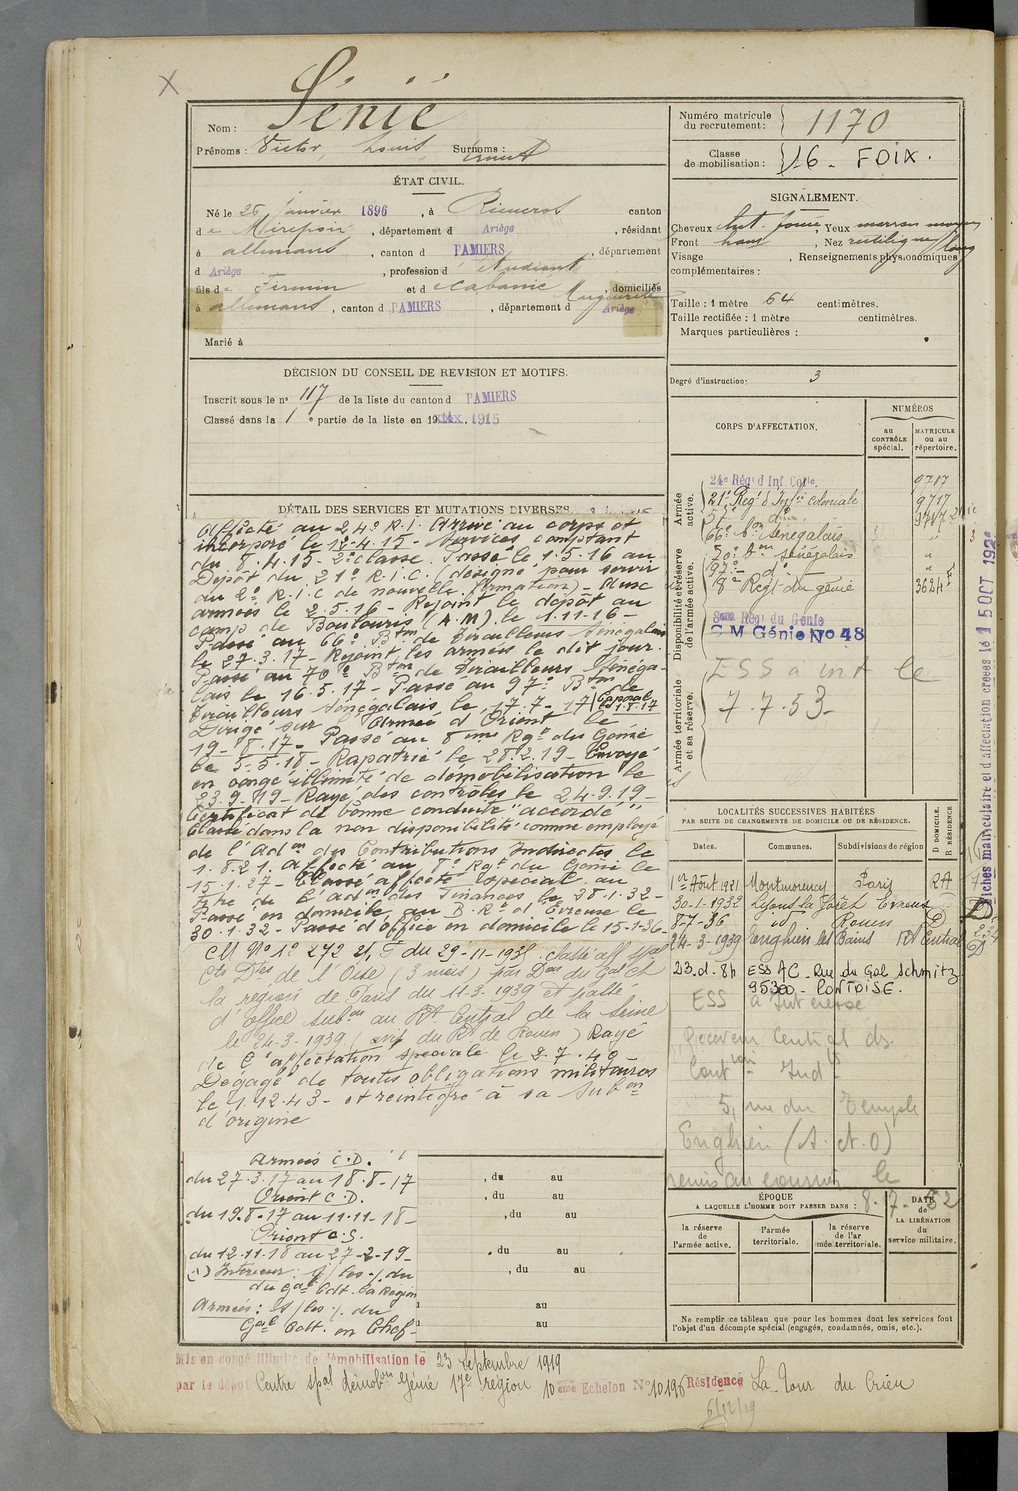 X
Sénié
Nom :
Prénoms : Victor, Louis, Surnoms : Ernest
Numéro matricule du recrutement : 1170
Classe de mobilisation : 16 - FOIX.
ÉTAT CIVIL.
Né le 26 janvier 1896, à Rieucros canton
de Mirepoix, département d Ariège, résidant
à allemans, canton d PAMIERS, département
d Ariège, profession d'étudiant
fils de Firmin et de Cabanié Marguerite, domiciliés
à allemans, canton d PAMIERS, département d Ariège
Marié à
SIGNALEMENT.
Cheveux chat. foncé, Yeux marron moyen
Front haut, Nez rectiligne long
Visage , Renseignements physionomiques
complémentaires :
Taille : 1 mètre 64 centimètres.
Taille rectifiée : 1 mètre centimètres.
Marques particulières :
Degré d'instruction : 3
DÉCISION DU CONSEIL DE REVISION ET MOTIFS.
Inscrit sous le nº 117 de la liste du canton d PAMIERS
Classé dans la 1e partie de la liste en 19 1915
CORPS D'AFFECTATION.
NUMÉROS
au CONTRÔLE spécial.
MATRICULE ou au répertoire.
Armée active.
24e Régt d Inf Cole. 9717
21e Regt d'Infie coloniale 9717
57e do 9717
66e Bon Sénégalais "
70e Bon Sénégalais "
97e do "
Disponibilité et réserve de l'armée active.
8e Regt du génie 3624
8eme Régt du Génie
C M Génie No 48
Armée territoriale et sa réserve.
ESS à int le
7.7.53-
DÉTAIL DES SERVICES ET MUTATIONS DIVERSES.
Affecté au 24e R.I. Arrivé au corps et
incorporé le 12-4-15 - Services comptant
du 8.4.15 - 2e classe. Passé le 1.5.16 au
Dépôt du 21e R.I.C. (désigné pour servir
au 2e R.I.C de nouvelle formation) - Aux
armées le 2.5.16 - Rejoint le dépôt au
camp de Boulouris (A.M). le 1.11.16 -
Passé au 66e Btm de Tirailleurs Sénégalais
le 27.3.17 - Rejoint les armées le dit jour.
Passé au 70e Btm de Tirailleurs Sénéga-
lais le 16.5.17 - Passé au 97e Btm de
Tirailleurs Sénégalais le 17.7.17 Caporal le 1.8.17
Dirigé sur l'Armée d'Orient le
19.8.17 - Passé au 8eme Rgt du Génie
le 5.5.18 - Rapatrié le 28.2.19 - Envoyé
en congé illimité de démobilisation le
23.9.19 - Rayé des contrôles le 24.9.19 -
Certificat de bonne conduite "accordé"
Classé dans la non disponibilité comme employé
de l'Adon des Contributions Indirectes le
1.8.21. Affecté au 8e Rgt du Génie le
15.1.27 - Classé affecté spécial au
titre de l'Adon des Finances le 28.1.32 -
Passé en domicile au B.Rt d'Evreux le
30.1.32 - Passé d'office en domicile le 15-1-36-
CM No 1o 272 du 29-11-1938
de l'Oise (3 mois) par Don du Gal Ct
la région de Paris du 11-3-1939 et passé
d'office subon au Rt Central de la Seine
le 24-3-1939 (avis du Rt de Rouen) Rayé
de l'affectation spéciale le 2.7.40 -
Dégagé de toutes obligations militaires
le 1.12.43 - et réintégré à sa Subon
d'origine
Armées C.D.
du 27.3.17 au 18.8-17
Orient C.D.
du 19.8-17 au 11-11-18-
Orient C.S.
du 12.11.18 au 27-2-19-
(1) Intérieur : s/ les . du
du Gal Cdt la Région
Armées : s/ les . du
Gal Cdt. en Chef -
, du au
, du au
, du au
, du au
, du au
au
au
LOCALITÉS SUCCESSIVES HABITÉES
PAR SUITE DE CHANGEMENTS DE DOMICILE OU DE RÉSIDENCE.
Dates. Communes. Subdivisions de région
D DOMICILE. R RÉSIDENCE
1er Août 1921 Montmorency Paris
30-1-1932 Lyons la Forêt Evreux
8-7-36 id Rouen D
24-3-1939 Enghien les Bains Rt Central D
23.d.84 ESS AC - Rue du Gal Schmitz
95300 - PONTOISE.
ESS à Intéressé
Receveur Central ds.
Contons Indes
5, rue du Temple
Enghien (S. et O)
remis au courrier le
8-7-52
ÉPOQUE
A LAQUELLE L'HOMME DOIT PASSER DANS :
DATE de LA LIBÉRATION du service militaire.
la réserve de l'armée active.
l'armée territoriale.
la réserve de l'armée territoriale.
Ne remplir ce tableau que pour les hommes dont les services font
l'objet d'un décompte spécial (engagés, condamnés, omis, etc.).
Mis en congé illimité de démobilisation le 23 septembre 1919
par le dépôt Centre spal démobon Génie 17e région 10eme Echelon No 10196 Résidence La Tour du Crieu
6/12/19
Fiches matriculaire et d'affectation créées le 15 OCT 192